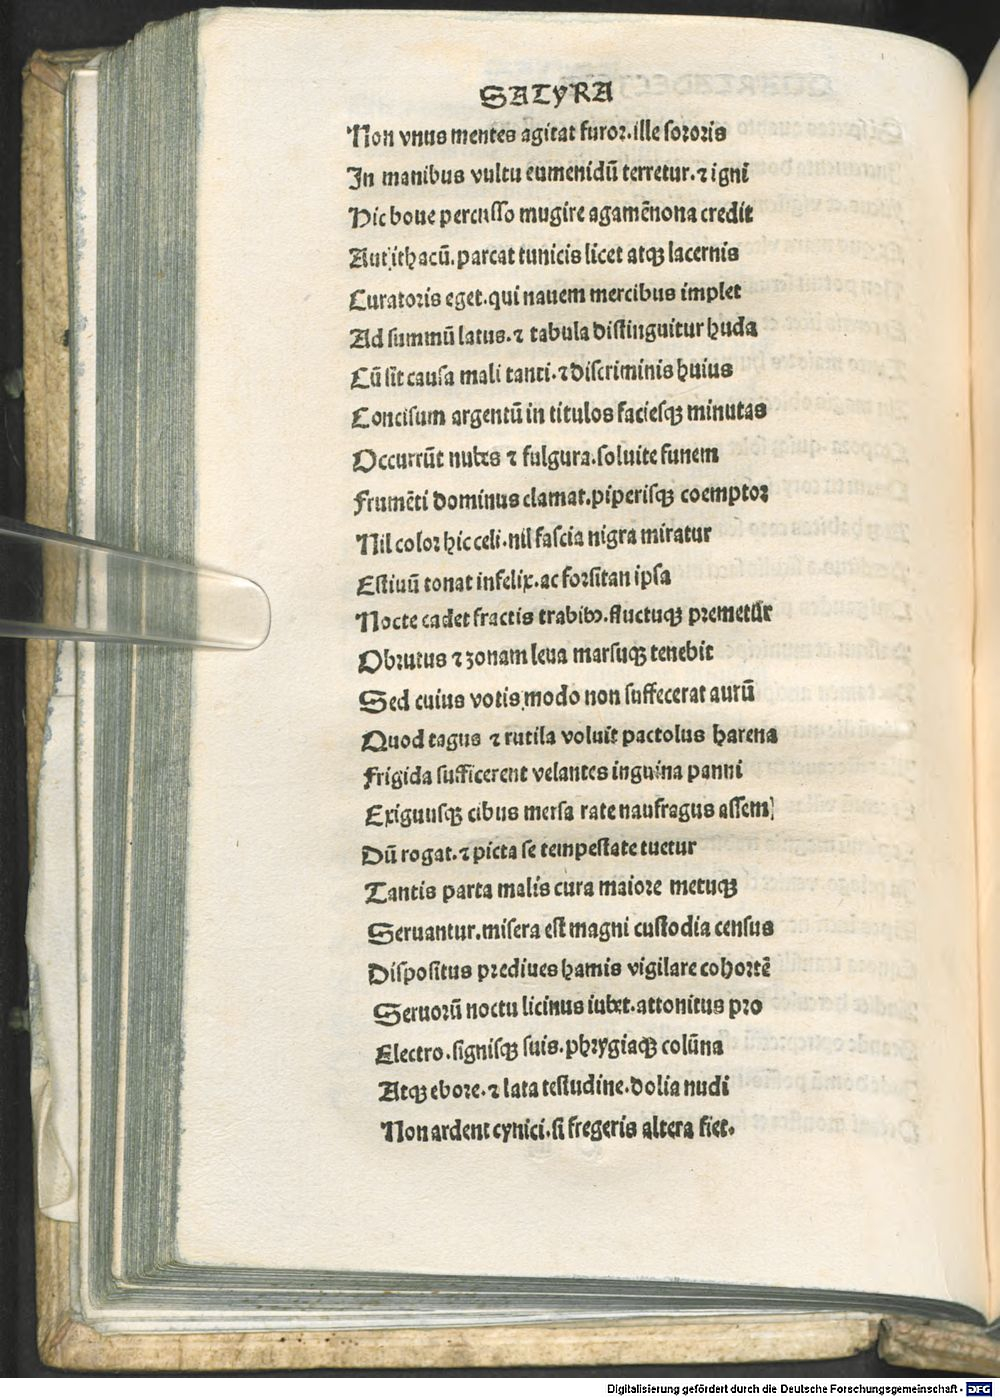 SATYRA
Non vnus mentes agitat furoꝛ.ille soꝛoꝛis
In manibus vultu eumenidū terretur.⁊ igni
Hic boue percusso mugire agamēnona credit
Aut ithacū.parcat tunicis licet atqꝫ lacernis
Curatoꝛis eget.qui nauem mercibus implet
Ad summū latus.⁊ tabula distinguitur huda
Cū sit causa mali tanti.⁊ discriminis huius
Concisum argentū in titulos faciesqꝫ minutas
Occurrūt nubes ⁊ fulgura.soluite funem
Frumēti dominus clamat.piperisqꝫ coemptoꝛ
Nil coloꝛ hic celi.nil fascia nigra miratur
Estiuū tonat infelix.ac foꝛsitan ipsa
Nocte cadet fractis trabibꝰ.fluctuqꝫ premetur
Obrutus ⁊ zonam leua marsuqꝫ tenebit
Sed cuius votis modo non suffecerat aurū
Quod tagus ⁊ rutila voluit pactolus harena
Frigida sufficerent velantes inguina panni
Exiguusqꝫ cibus mersa rate naufragus assem
Dū rogat.⁊ picta se tempestate tuetur
Tantis parta malis cura maioꝛe metuqꝫ
Seruantur.misera est magni custodia census
Dispositus pꝛediues hamis vigilare cohoꝛtē
Seruoꝛū noctu licinus iubet.attonitus pꝛo
Electro.signisqꝫ suis.phꝛygiaqꝫ colūna
Atqꝫ eboꝛe.⁊ lata testudine.dolia nudi
Non ardent cynici.si fregeris altera fiet.
Digitalisierung gefördert durch die Deutsche Forschungsgemeinschaft - DFG